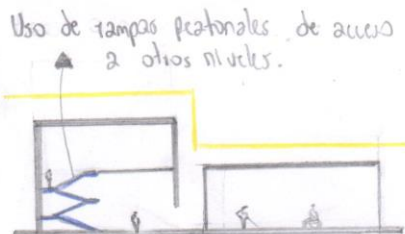 Uso de rampas peatonales de acceso
a otros niveles.